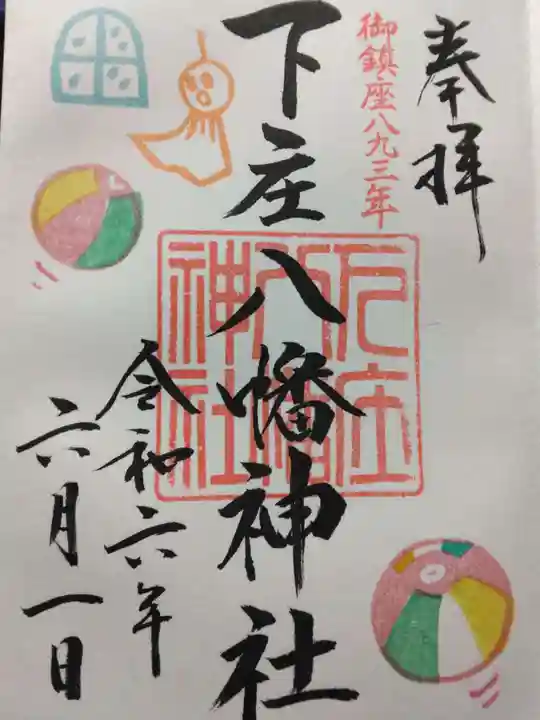 奉拝
御鎮座八九三年
下庄八幡神社
下庄八幡神社
令和六年
六月一日